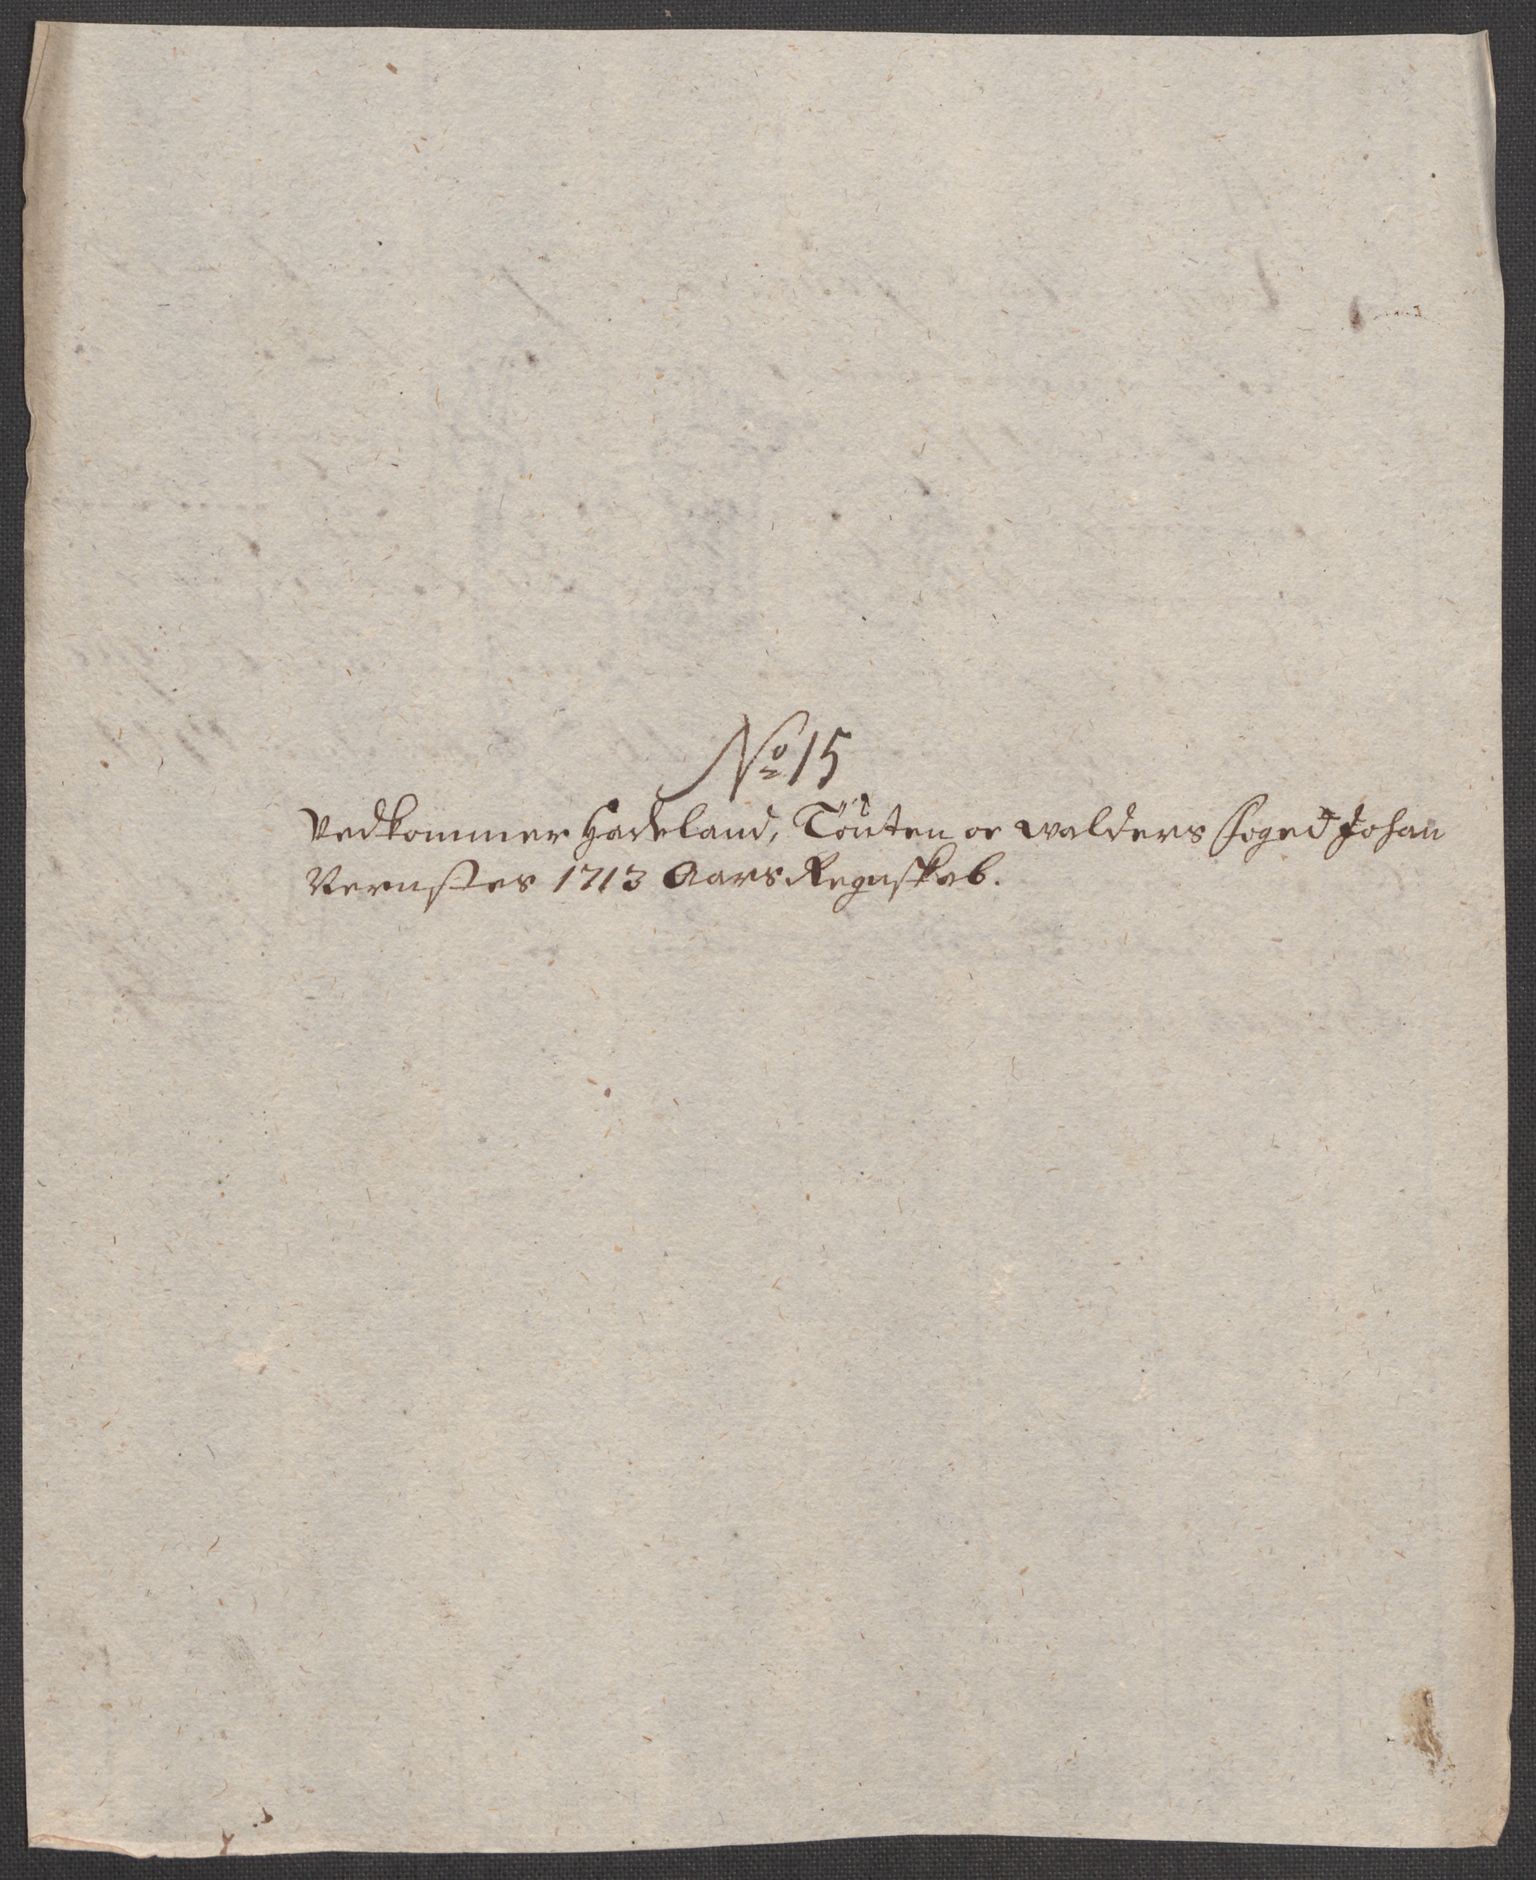 No 15
Vedkommer Hadeland, Touten oc Walders foged Johan
Vernstes 1713 Aars Regnskab.